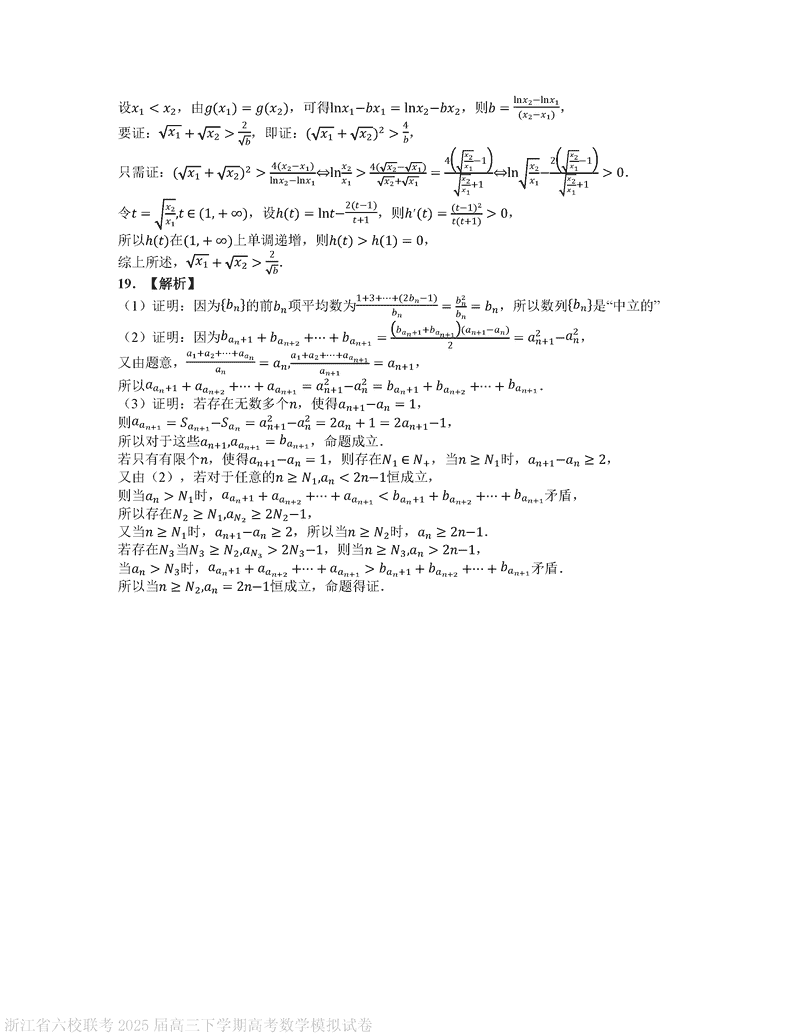 设x₁ < x₂，由g(x₁) = g(x₂)，可得lnx₁−bx₁ = lnx₂−bx₂，则b = \frac{lnx₂−lnx₁}{(x₂−x₁)}，
要证：√x₁ + √x₂ > \frac{2}{√b}，即证：(√x₁ + √x₂)² > \frac{4}{b}，
只需证：(√x₁ + √x₂)² > \frac{4(x₂−x₁)}{lnx₂−lnx₁}⇔ln\frac{x₂}{x₁} > \frac{4(√x₂−√x₁)}{√x₂+√x₁} = \frac{4(\sqrt{\frac{x₂}{x₁}}−1)}{\sqrt{\frac{x₂}{x₁}}+1}⇔ln\sqrt{\frac{x₂}{x₁}}−\frac{2(\sqrt{\frac{x₂}{x₁}}−1)}{\sqrt{\frac{x₂}{x₁}}+1} > 0．
令t = \sqrt{\frac{x₂}{x₁}},t ∈ (1, + ∞)，设h(t) = lnt−\frac{2(t−1)}{t+1}，则h′(t) = \frac{(t−1)²}{t(t+1)} > 0，
所以h(t)在(1, + ∞)上单调递增，则h(t) > h(1) = 0，
综上所述，√x₁ + √x₂ > \frac{2}{√b}．
19．【解析】
（1）证明：因为{b_n}的前b_n项平均数为\frac{1+3+⋯+(2b_n−1)}{b_n} = \frac{b_n^2}{b_n} = b_n，所以数列{b_n}是“中立的”
（2）证明：因为b_{a_n+1} + b_{a_n+2} +⋯+ b_{a_{n+1}} = \frac{(b_{a_n+1}+b_{a_{n+1}})(a_{n+1}−a_n)}{2} = a_{n+1}^2−a_n^2，
又由题意，\frac{a₁+a₂+⋯+a_{a_n}}{a_n} = a_n,\frac{a₁+a₂+⋯+a_{a_{n+1}}}{a_{n+1}} = a_{n+1}，
所以a_{a_n+1} + a_{a_n+2} +⋯+ a_{a_{n+1}} = a_{n+1}^2−a_n^2 = b_{a_n+1} + b_{a_n+2} +⋯+ b_{a_{n+1}}．
（3）证明：若存在无数多个n，使得a_{n+1}−a_n = 1，
则a_{a_{n+1}} = S_{a_{n+1}}−S_{a_n} = a_{n+1}^2−a_n^2 = 2a_n + 1 = 2a_{n+1}−1，
所以对于这些a_{n+1},a_{a_{n+1}} = b_{a_{n+1}}，命题成立．
若只有有限个n，使得a_{n+1}−a_n = 1，则存在N₁ ∈ N₊，当n ≥ N₁时，a_{n+1}−a_n ≥ 2，
又由（2），若对于任意的n ≥ N₁,a_n < 2n−1恒成立，
则当a_n > N₁时，a_{a_n+1} + a_{a_n+2} +⋯+ a_{a_{n+1}} < b_{a_n+1} + b_{a_n+2} +⋯+ b_{a_{n+1}}矛盾，
所以存在N₂ ≥ N₁,a_{N₂} ≥ 2N₂−1，
又当n ≥ N₁时，a_{n+1}−a_n ≥ 2，所以当n ≥ N₂时，a_n ≥ 2n−1．
若存在N₃当N₃ ≥ N₂,a_{N₃} > 2N₃−1，则当n ≥ N₃,a_n > 2n−1，
当a_n > N₃时，a_{a_n+1} + a_{a_n+2} +⋯+ a_{a_{n+1}} > b_{a_n+1} + b_{a_n+2} +⋯+ b_{a_{n+1}}矛盾．
所以当n ≥ N₂,a_n = 2n−1恒成立，命题得证．
浙江省六校联考 2025 届高三下学期高考数学模拟试卷